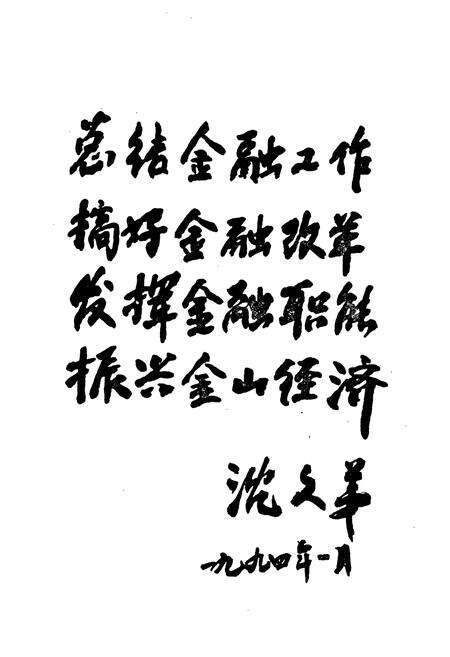 总结金融工作
搞好金融改革
发挥金融职能
振兴金山经济
沈文
一九九四年一月